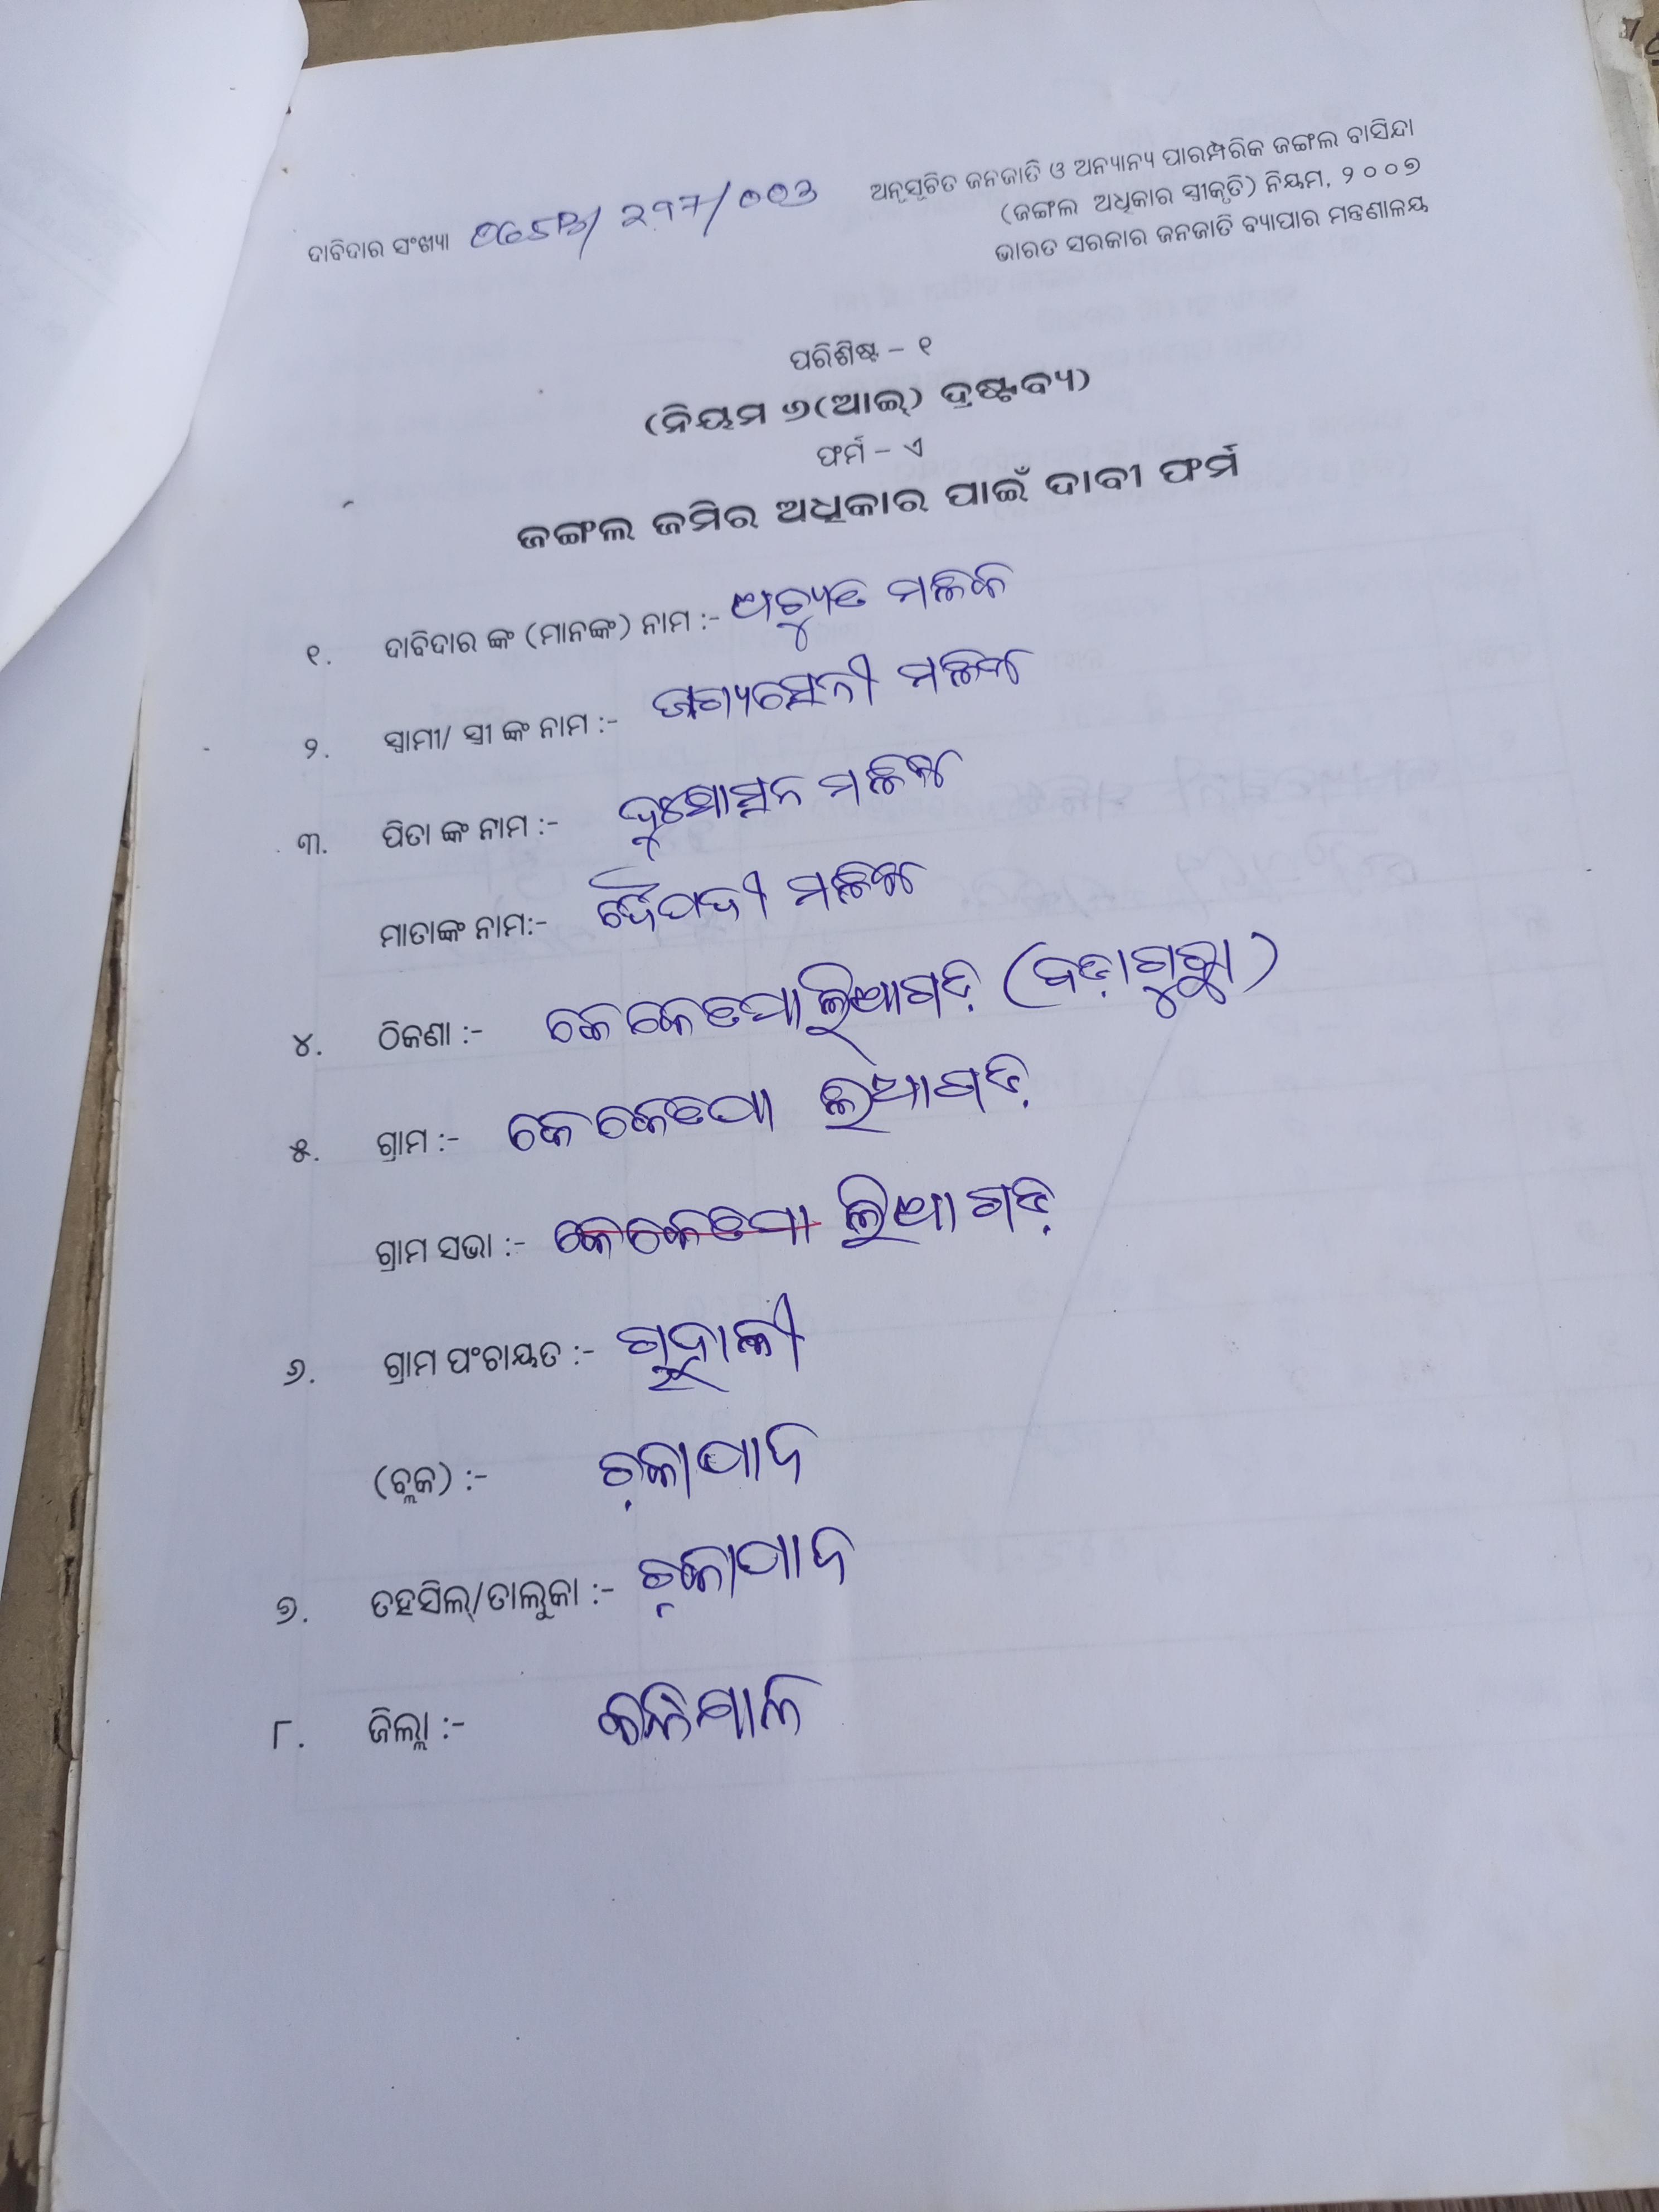 ଦାବିଦାର ସଂଖ୍ୟା 297/003
ଅନୁସୂଚିତ ଜନଜାତି ଓ ଅନ୍ୟାନ୍ୟ ପାରମ୍ପରିକ ଜଙ୍ଗଲ ବାସିନ୍ଦା
(ଜଙ୍ଗଲ ଅଧିକାର ସ୍ୱୀକୃତି) ନିୟମ, ୨୦୦୭
ଭାରତ ସରକାର ଜନଜାତି ବ୍ୟାପାର ମନ୍ତ୍ରଣାଳୟ
ପରିଶିଷ୍ଟ - ୧
(ନିୟମ ୬(ଆଇ) ଦ୍ରଷ୍ଟବ୍ୟ)
ଫର୍ମ - ଏ
ଜଙ୍ଗଲ ଜମିର ଅଧିକାର ପାଇଁ ଦାବୀ ଫର୍ମ
୧. ଦାବିଦାର ଙ୍କ (ମାନଙ୍କ) ନାମ :- ଅଚ୍ୟୁତ ମଳିକ
୨. ସ୍ୱାମୀ/ ସ୍ତ୍ରୀ ଙ୍କ ନାମ :- ଜାଗ୍ୟସେନୀ ମଳିକ
୩. ପିତା ଙ୍କ ନାମ :- ମଳିକ
ମାତାଙ୍କ ନାମ:- ମଳିକ
୪. ଠିକଣା :- କେକେତପାଲିଆଗଡ଼
୫. ଗ୍ରାମ :- କେକେତପା ଲିଆଗଡ଼
ଗ୍ରାମ ସଭା :- କେକେତପା ଲିଆଗଡ଼
୬. ଗ୍ରାମ ପଂଚାୟତ :-
(ବ୍ଲକ) :- ଚକାପାଦ
୭. ତହସିଲ୍/ତାଲୁକା :- ଚକାପାଦ
୮. ଜିଲ୍ଲା :-